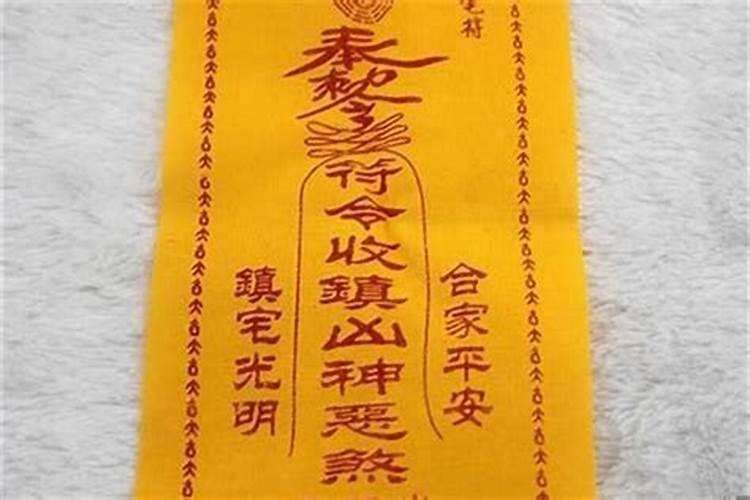 符
奉勅令
符令收鎮凶神惡煞
合家平安
鎮宅光明